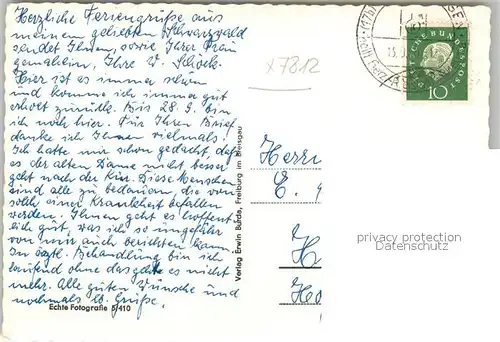 Herzliche Feriengrüße aus
meinem geliebten Schwarzwald
sendet Ihnen, sowie Ihrer Frau
gemahlin, Ihre W. Schock.
Hier ist es immer schön
und komme ich immer gut
erholt zurück. Bis 28. 9. bin
ich noch hier. Für Ihren Brief
danke ich Ihnen vielmals.
Ich hatte mir schon gedacht, daß
es der alten Dame nicht besser
geht nach der Kur. Diese Menschen
sind alle zu bedauern, die von
solch einer Krankheit befallen
werden. Ihnen geht es hoffent
lich gut, was ich so ungefähr
von mir auch berichten kann.
In ärztl. Behandlung bin ich
laufend ohne das geht es nicht
mehr. Alle guten Wünsche und
nochmals Grüße.
Echte Fotografie 5/410
Verlag Erwin Burda, Freiburg im Breisgau
x7812
DEUTSCHE BUNDESPOST
10
Herrn
E.
H
privacy protection
Datenschutz